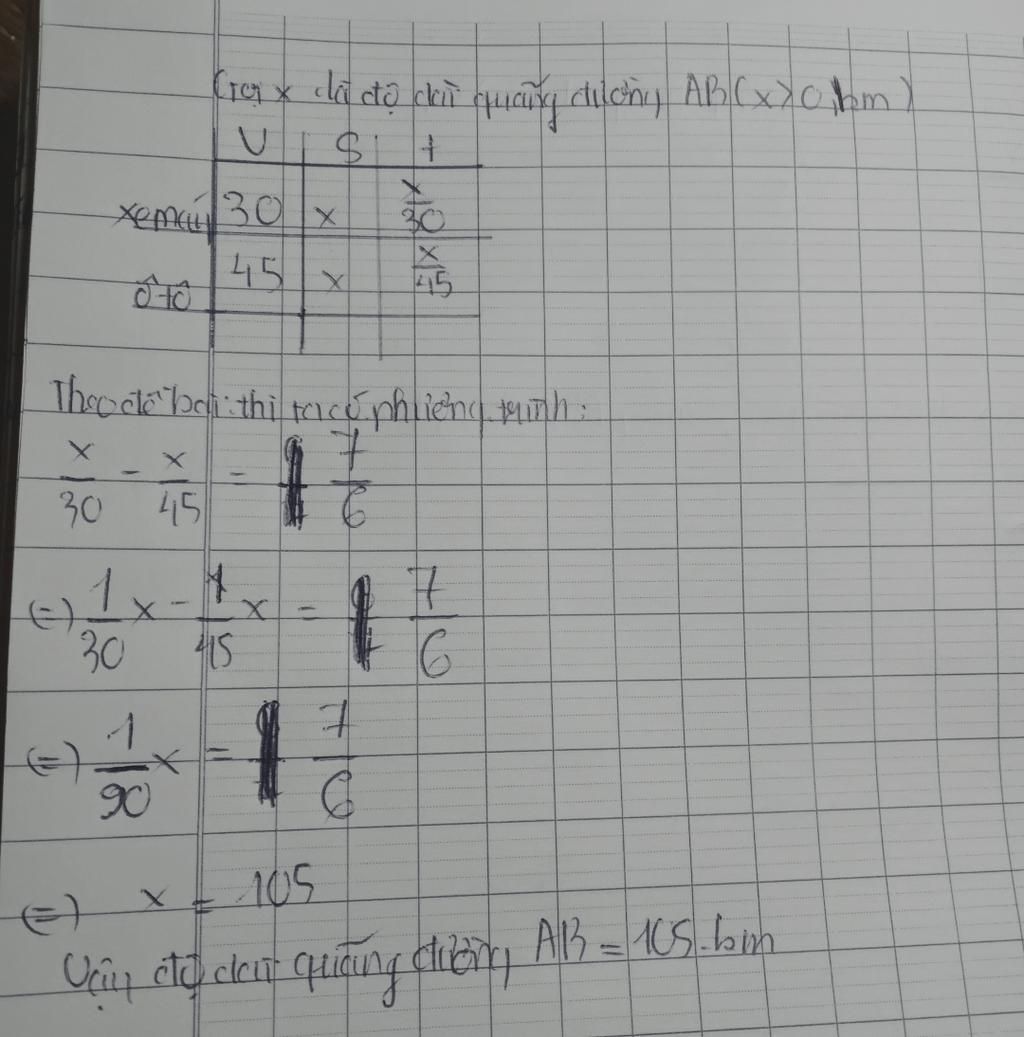 Gọi x là độ dài quãng đường AB (x>0, km)
V S t
xe máy 30 x x/30
Ô tô 45 x x/45
Theo đề bài: thì ta có phương trình:
x/30 - x/45 = 7/6
(=) 1/30 x - 1/45 x = 7/6
(=) 1/90 x = 7/6
(=) x = 105
Vậy độ dài quãng đường AB = 105 km